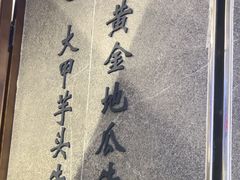 黄金地瓜
大甲芋头